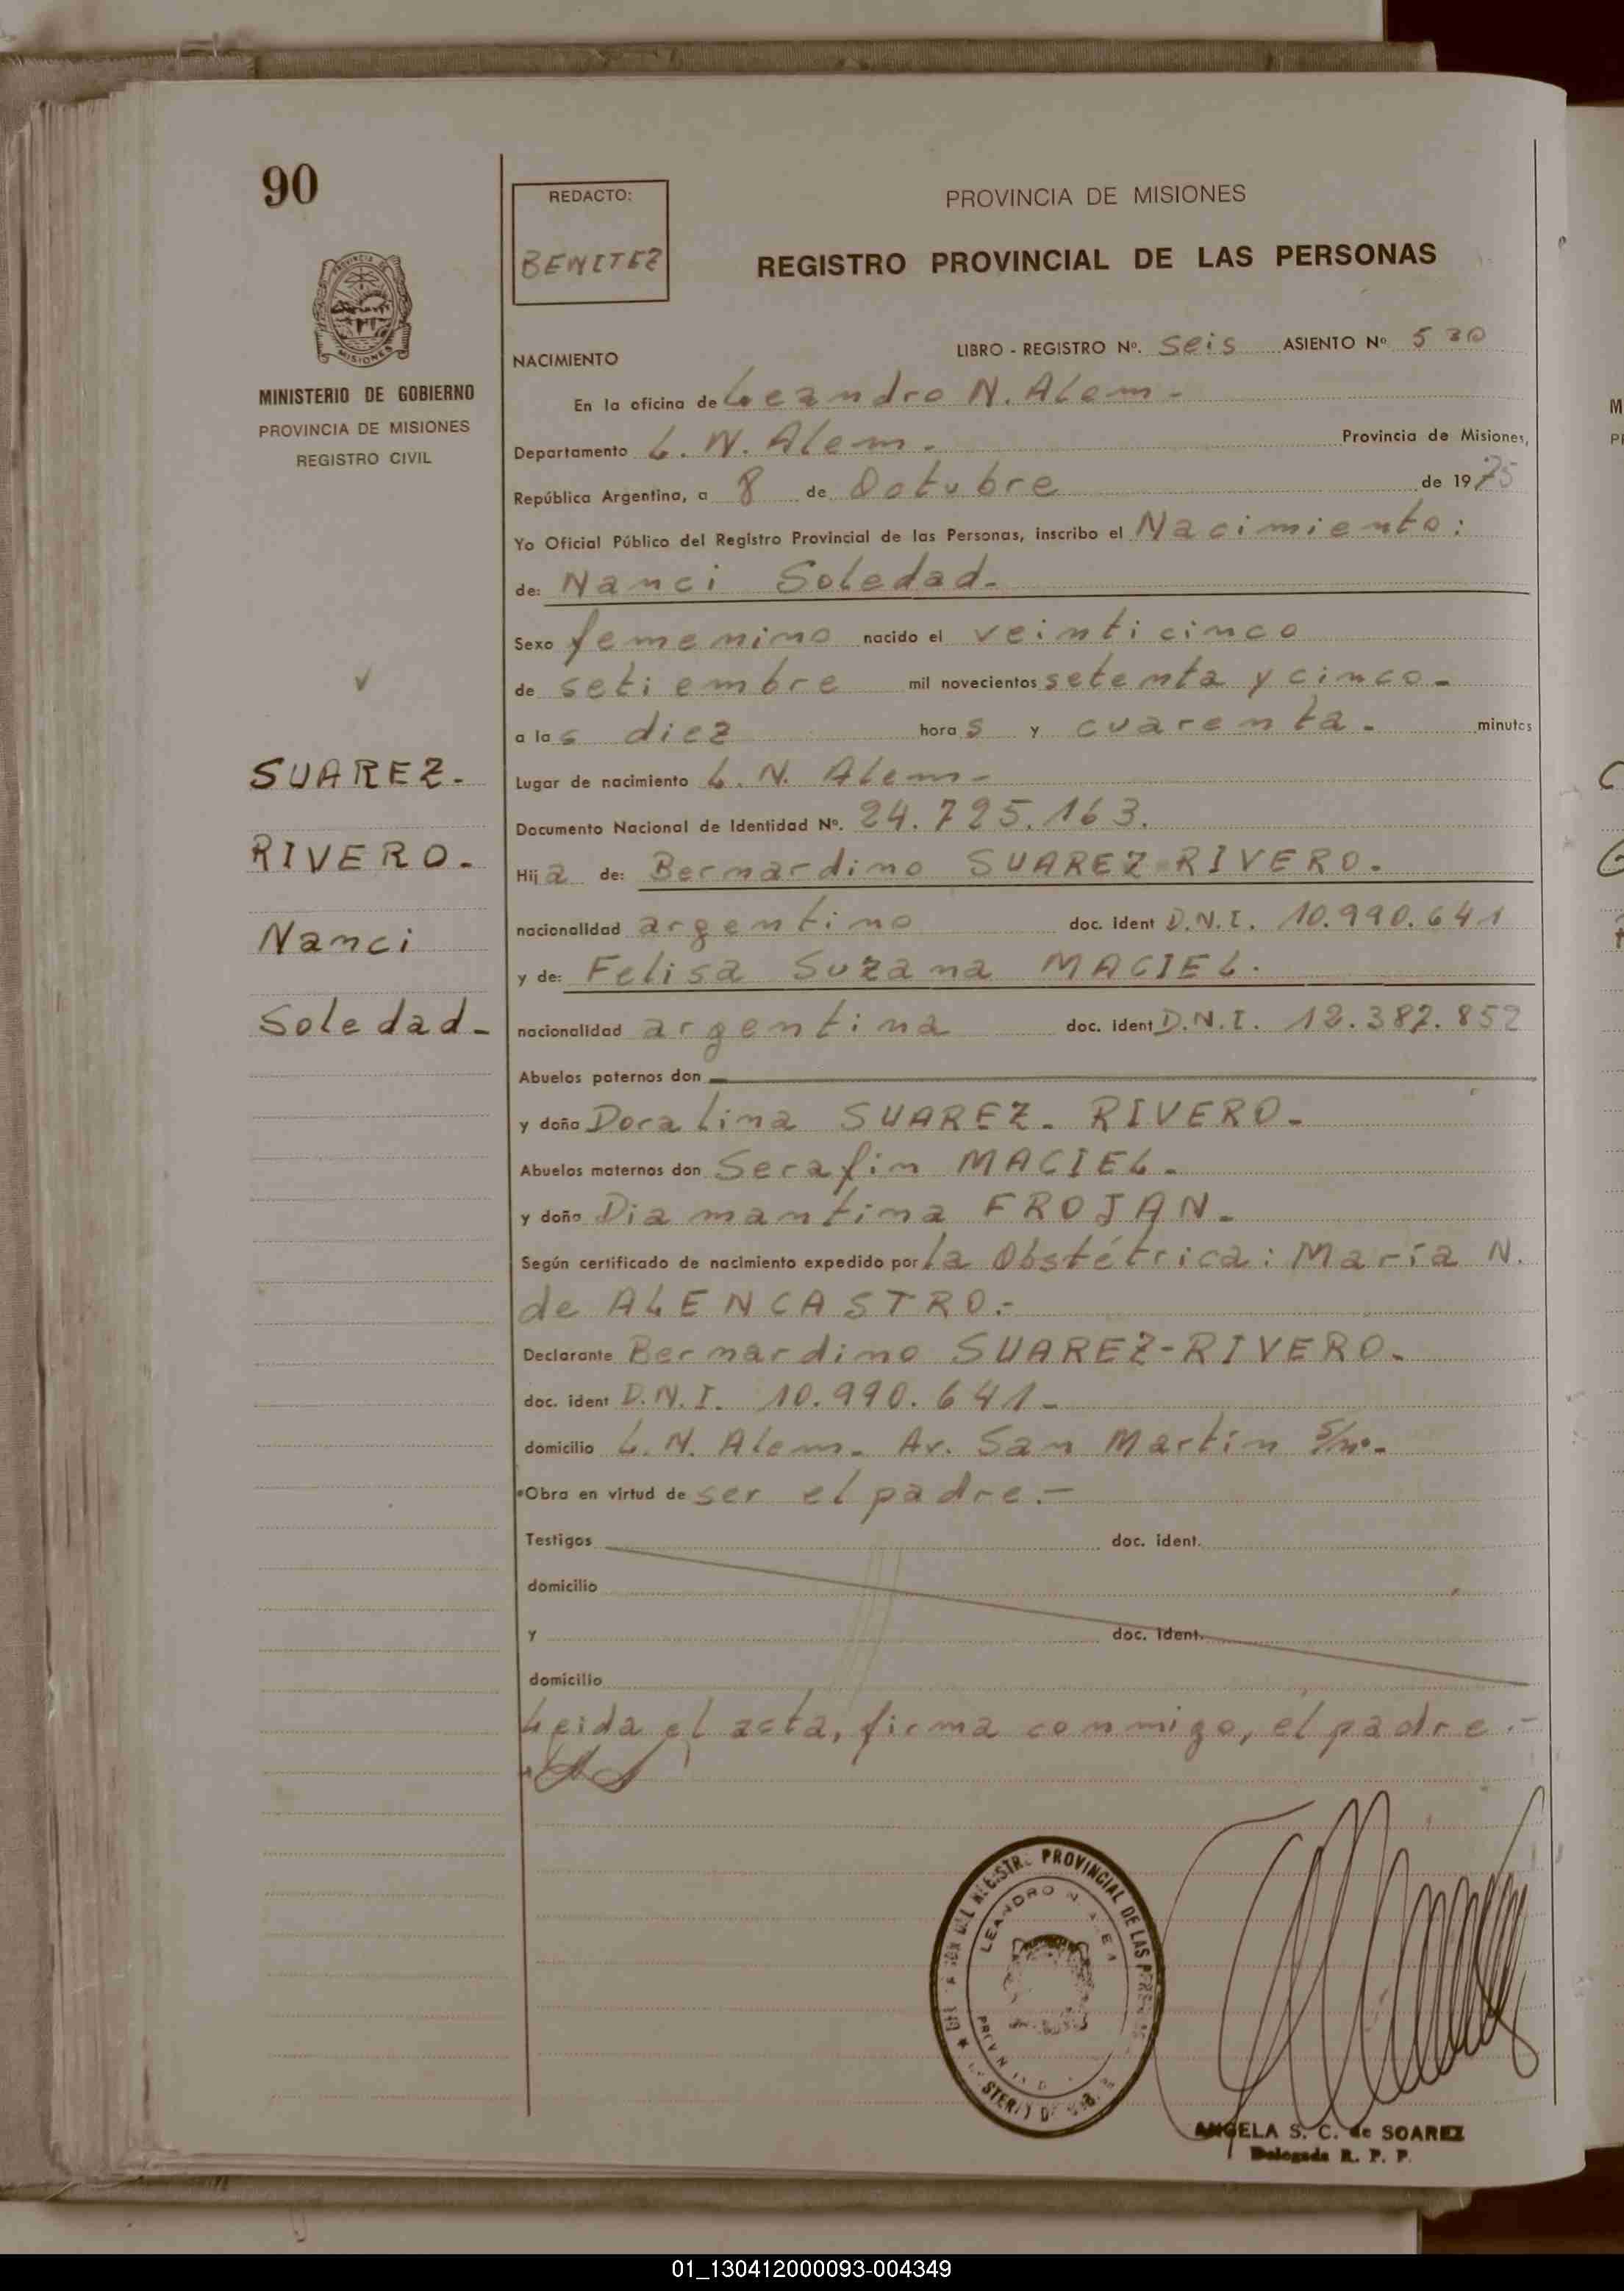 90
REDACTO:
BENITEZ
PROVINCIA DE MISIONES
REGISTRO PROVINCIAL DE LAS PERSONAS
MISIONES
MINISTERIO DE GOBIERNO
PROVINCIA DE MISIONES
REGISTRO CIVIL
NACIMIENTO
LIBRO - REGISTRO Nº. Seis ASIENTO Nº 530
En la oficina de Leandro N. Alem -
Departamento L. N. Alem - Provincia de Misiones,
República Argentina, a 8 de Octubre de 1975
Yo Oficial Público del Registro Provincial de las Personas, inscribo el Nacimiento:
de: Nanci Soledad-
Sexo femenino nacido el veinticinco
de setiembre mil novecientos setenta y cinco-
a las diez horas y cuarenta- minutos
Lugar de nacimiento L. N. Alem-
Documento Nacional de Identidad Nº. 24.725.163.
Hija de: Bernardino SUAREZ-RIVERO.
nacionalidad argentino doc. ident D.N.I. 10.990.641
y de: Felisa Suzana MACIEL.
nacionalidad argentina doc. ident D.N.I. 12.387.852
Abuelos paternos don
y doña Doralina SUAREZ-RIVERO-
Abuelos maternos don Serafin MACIEL-
y doña Diamantina FROJAN-
Según certificado de nacimiento expedido por la Obstétrica: María N.
de ALENCASTRO.-
Declarante Bernardino SUAREZ-RIVERO-
doc. ident D.N.I. 10.990.641-
domicilio L. N. Alem- Av. San Martín S/nº-
Obra en virtud de ser el padre.-
Testigos doc. ident.
domicilio
y doc. ident.
domicilio
Leida el acta, firma conmigo, el padre.-
SUAREZ-
RIVERO-
Nanci
Soledad-
PROVINCIAL DE LAS
LEANDRO N
ANGELA S. C. de SOAREZ
Delegada R. P. P.
01_130412000093-004349